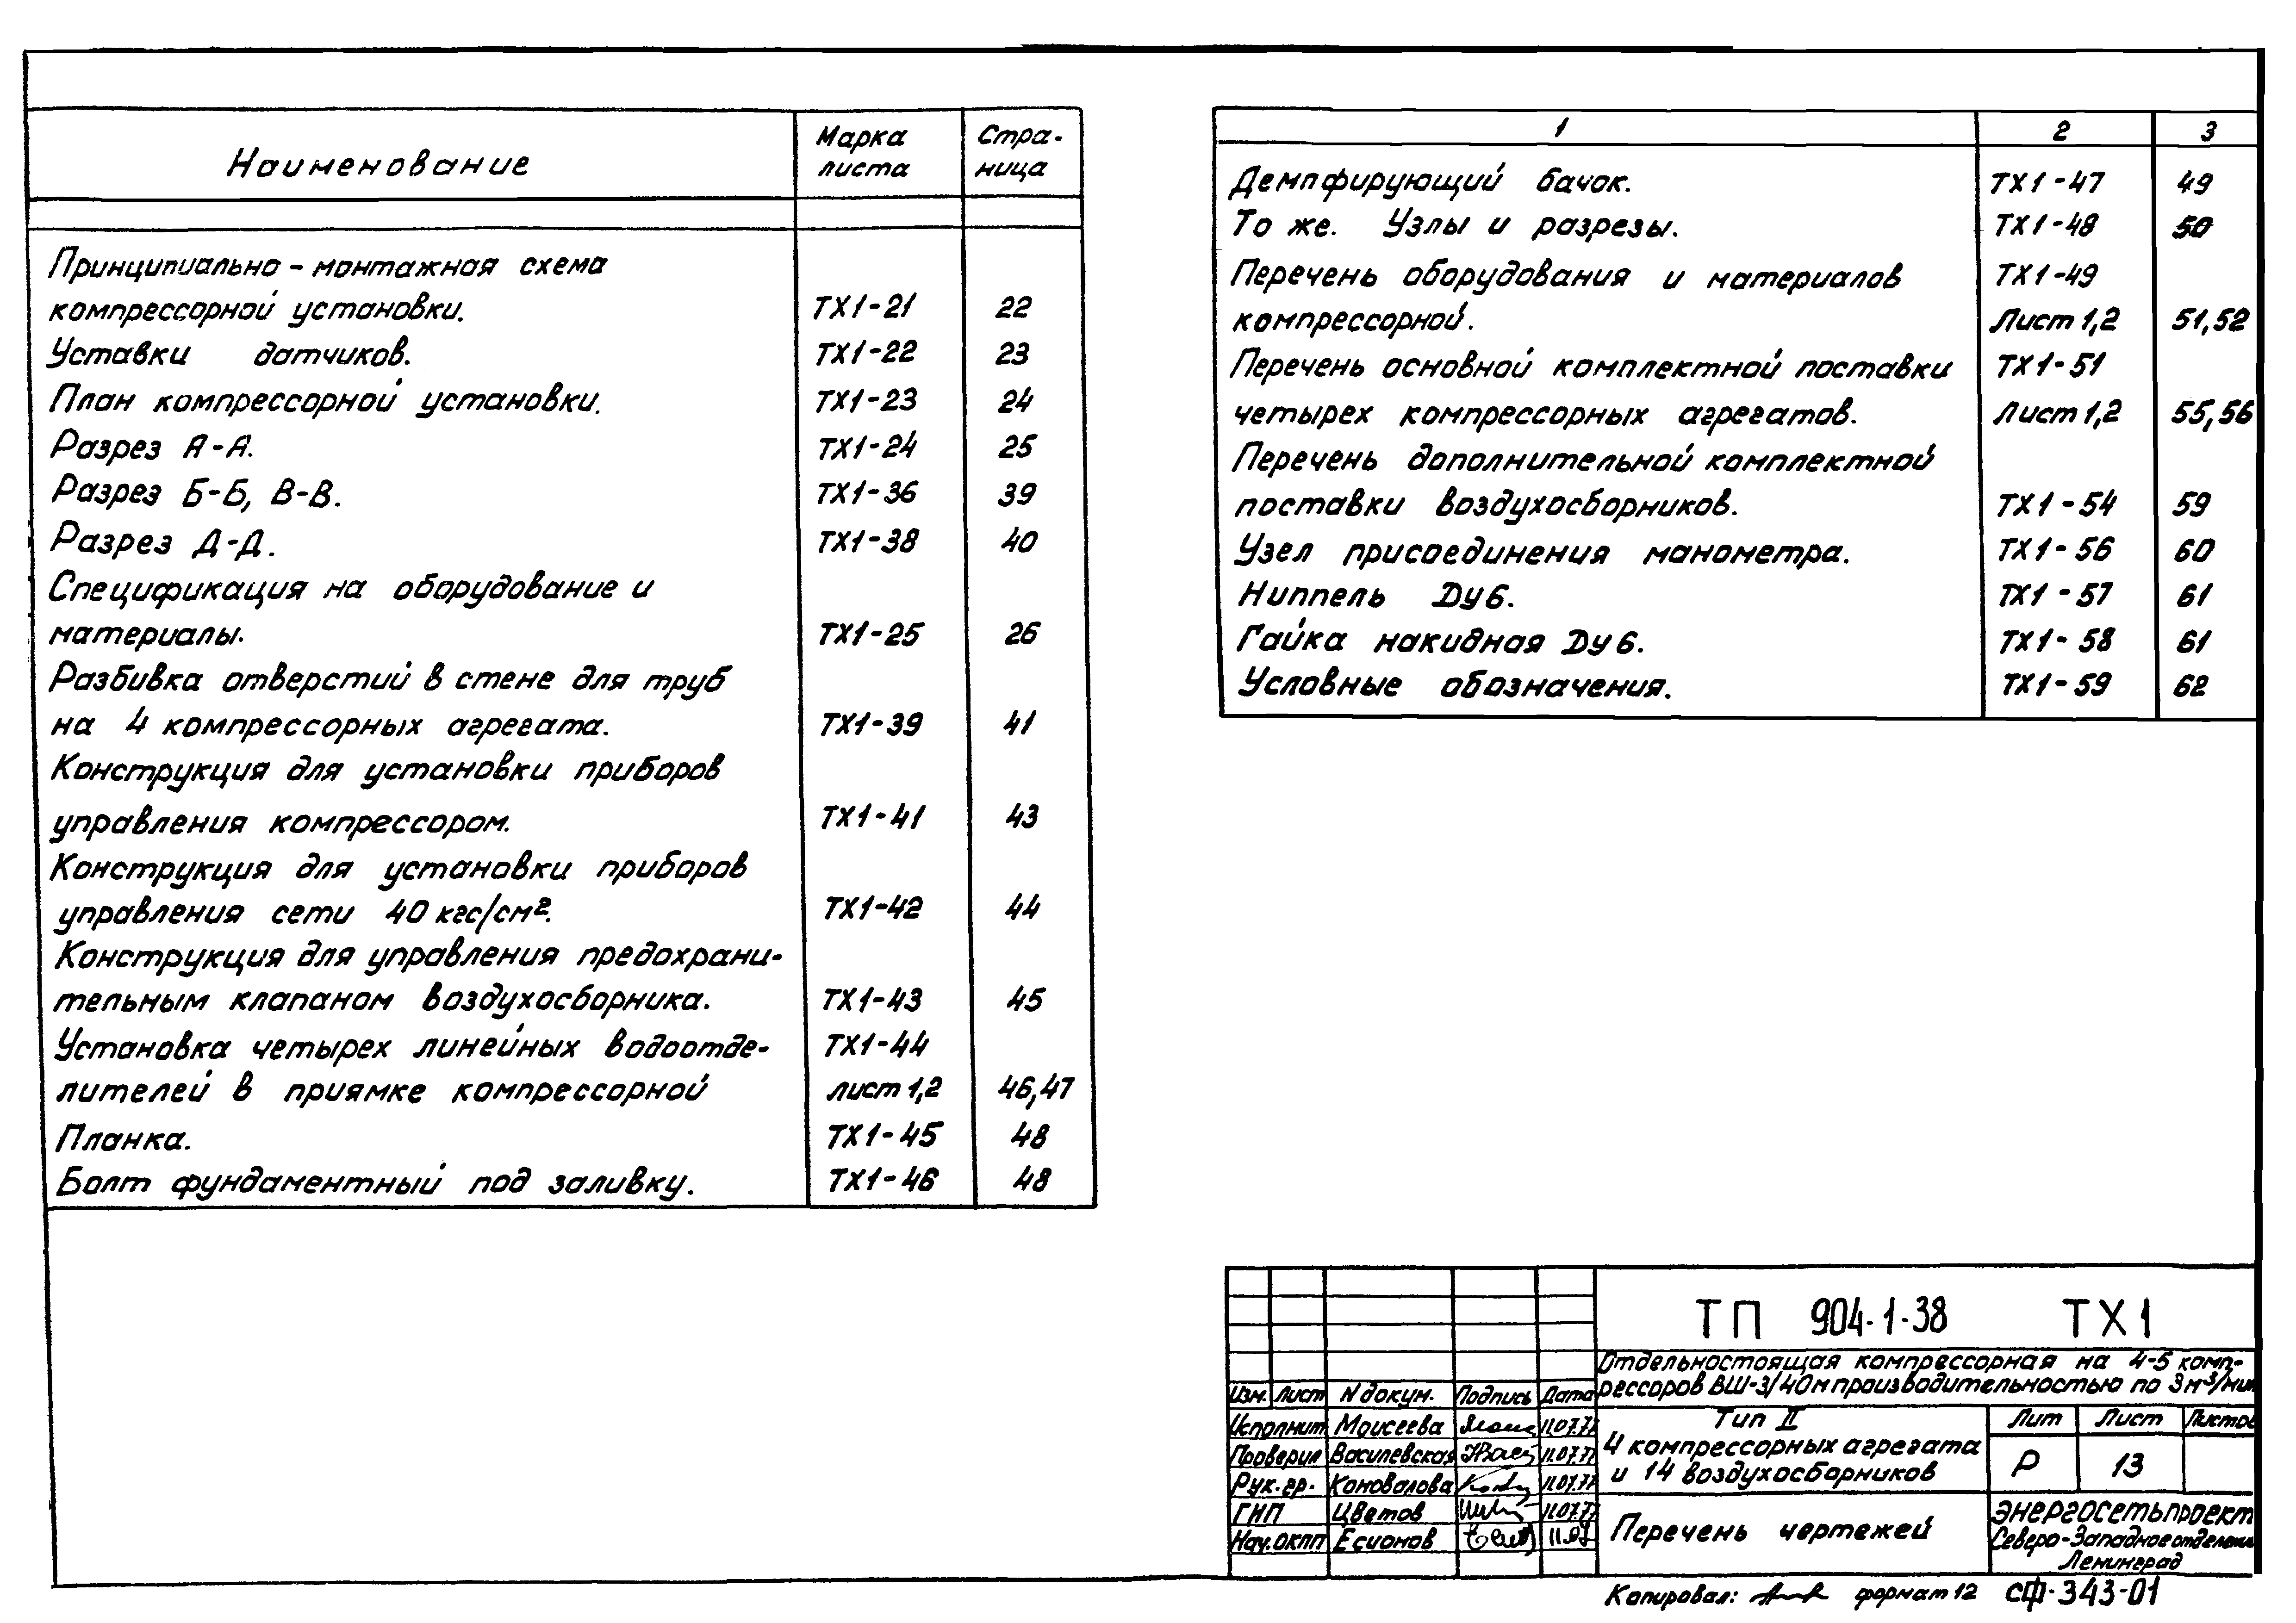 Наименование Марка листа Стра-ница
Принципиально-монтажная схема
компрессорной установки. ТХ1-21 22
Уставки датчиков. ТХ1-22 23
План компрессорной установки. ТХ1-23 24
Разрез А-А. ТХ1-24 25
Разрез Б-Б, В-В. ТХ1-36 39
Разрез Д-Д. ТХ1-38 40
Спецификация на оборудование и
материалы. ТХ1-25 26
Разбивка отверстий в стене для труб
на 4 компрессорных агрегата. ТХ1-39 41
Конструкция для установки приборов
управления компрессором. ТХ1-41 43
Конструкция для установки приборов
управления сети 40 кгс/см². ТХ1-42 44
Конструкция для управления предохрани-
тельным клапаном воздухосборника. ТХ1-43 45
Установка четырех линейных водоотде- ТХ1-44
лителей в приямке компрессорной лист 1,2 46,47
Планка. ТХ1-45 48
Болт фундаментный под заливку. ТХ1-46 48
1 2 3
Демпфирующий бачок. ТХ1-47 49
То же. Узлы и разрезы. ТХ1-48 50
Перечень оборудования и материалов ТХ1-49
компрессорной. Лист 1,2 51,52
Перечень основной комплектной поставки ТХ1-51
четырех компрессорных агрегатов. Лист 1,2 55,56
Перечень дополнительной комплектной
поставки воздухосборников. ТХ1-54 59
Узел присоединения манометра. ТХ1-56 60
Ниппель Ду6. ТХ1-57 61
Гайка накидная Ду6. ТХ1-58 61
Условные обозначения. ТХ1-59 62
ТП 904-1-38 ТХ1
Отдельностоящая компрессорная на 4-5 комп-
рессоров ВШ-3/40м производительностью по 3м³/мин
Изм. Лист N докум. Подпись Дата
Исполнит Моисеева 11.07.77
Проверил Василевская 11.07.77
Рук.гр. Коновалова 11.07.77
ГИП Цветов 11.07.77
Нач.ОКПП Есионов 11.07
Тип II
4 компрессорных агрегата
и 14 воздухосборников
Лит Лист Листов
Р 13
Перечень чертежей
Энергосетьпроект
Северо-Западное отделение
Ленинград
Копировал: формат 12 СФ-343-01